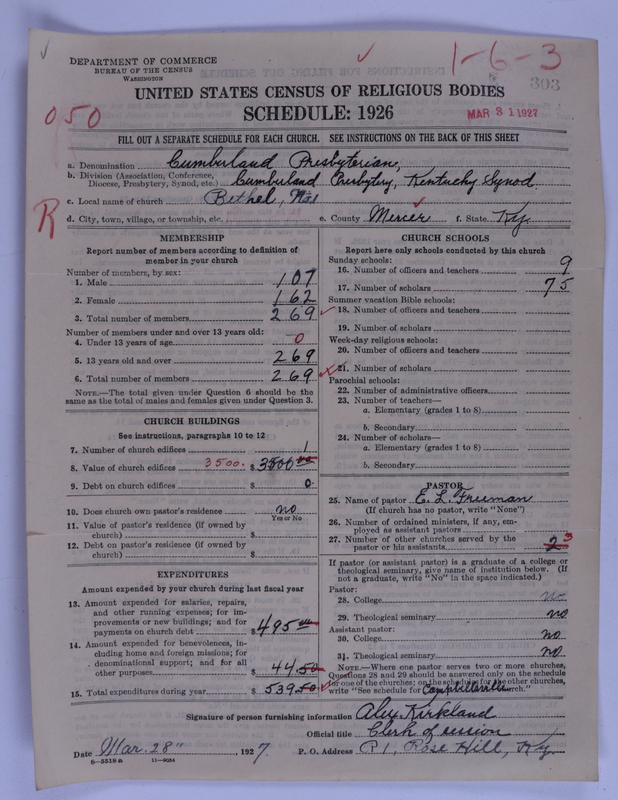 1-6-3
DEPARTMENT OF COMMERCE
BUREAU OF THE CENSUS
WASHINGTON
303
UNITED STATES CENSUS OF RELIGIOUS BODIES
SCHEDULE: 1926
MAR 31 1927
050
FILL OUT A SEPARATE SCHEDULE FOR EACH CHURCH. SEE INSTRUCTIONS ON THE BACK OF THIS SHEET
a. Denomination Cumberland Presbyterian,
b. Division (Association, Conference, Diocese, Presbytery, Synod, etc.) Cumberland Presbytery, Kentucky Synod
c. Local name of church Bethel,
R
d. City, town, village, or township, etc. e. County Mercer f. State Ky.
MEMBERSHIP
Report number of members according to definition of
member in your church
Number of members, by sex:
1. Male 107
2. Female 162
3. Total number of members 269
Number of members under and over 13 years old:
4. Under 13 years of age 0
5. 13 years old and over 269
6. Total number of members 269
NOTE.—The total given under Question 6 should be the
same as the total of males and females given under Question 3.
CHURCH BUILDINGS
See instructions, paragraphs 10 to 12
7. Number of church edifices 1
8. Value of church edifices 3500. $ 3500 00
9. Debt on church edifices $ 0
10. Does church own pastor's residence no
Yes or No
11. Value of pastor's residence (if owned by
church) $
12. Debt on pastor's residence (if owned by
church) $
EXPENDITURES
Amount expended by your church during last fiscal year
13. Amount expended for salaries, repairs,
and other running expenses; for im-
provements or new buildings; and for
payments on church debt $ 495 00
14. Amount expended for benevolences, in-
cluding home and foreign missions; for
denominational support; and for all
other purposes $ 44.50
15. Total expenditures during year $ 539.50
CHURCH SCHOOLS
Report here only schools conducted by this church
Sunday schools:
16. Number of officers and teachers 9
17. Number of scholars 75
Summer vacation Bible schools:
18. Number of officers and teachers
19. Number of scholars
Week-day religious schools:
20. Number of officers and teachers
21. Number of scholars
Parochial schools:
22. Number of administrative officers
23. Number of teachers—
a. Elementary (grades 1 to 8)
b. Secondary
24. Number of scholars—
a. Elementary (grades 1 to 8)
b. Secondary
PASTOR
25. Name of pastor E. L. Freeman
(If church has no pastor, write "None")
26. Number of ordained ministers, if any, em-
ployed as assistant pastors
27. Number of other churches served by the
pastor or his assistants 2 3
If pastor (or assistant pastor) is a graduate of a college or
theological seminary, give name of institution below. (If
not a graduate, write "No" in the space indicated.)
Pastor:
28. College no
29. Theological seminary no
Assistant pastor:
30. College no
31. Theological seminary no
NOTE.—Where one pastor serves two or more churches,
Questions 28 and 29 should be answered only on the schedule
for one of the churches; on the schedule for the other churches,
write "See schedule for Campbellsville church."
Signature of person furnishing information Alex Kirkland
Official title Clerk of session
Date Mar. 28", 1927 P. O. Address R 1, Rose Hill, Ky.
8-5518 a 11-9034